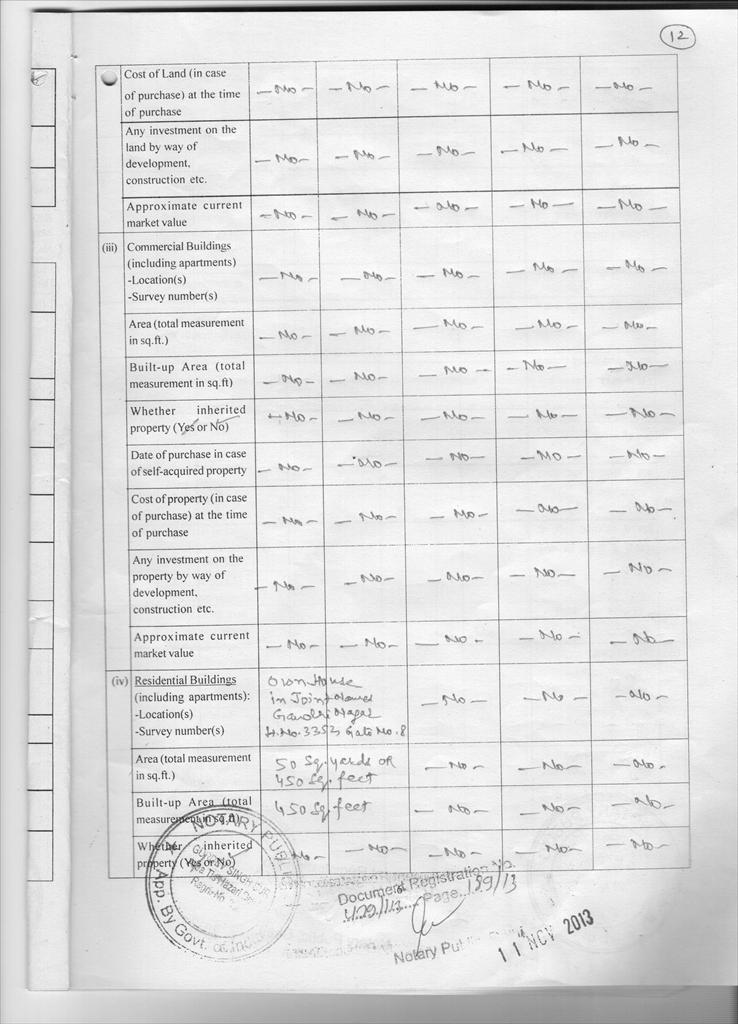 12
Cost of Land (in case
of purchase) at the time
of purchase
— No — — No — — No — — No — — No —
Any investment on the
land by way of
development,
construction etc.
— No — — No — — No — — No — — No —
Approximate current
market value
— No — — No — — No — — No — — No —
(iii) Commercial Buildings
(including apartments)
-Location(s)
-Survey number(s)
— No — — No — — No — — No — — No —
Area (total measurement
in sq.ft.)
— No — — No — — No — — No — — No —
Built-up Area (total
measurement in sq.ft)
— No — — No — — No — — No — — No —
Whether inherited
property (Yes or No)
— No — — No — — No — — No — — No —
Date of purchase in case
of self-acquired property
— No — — No — — No — — No — — No —
Cost of property (in case
of purchase) at the time
of purchase
— No — — No — — No — — No — — No —
Any investment on the
property by way of
development,
construction etc.
— No — — No — — No — — No — — No —
Approximate current
market value
— No — — No — — No — — No — — No —
(iv) Residential Buildings
(including apartments):
-Location(s)
-Survey number(s)
Own House
in Joint
Gandhi Nagar
H.No. 3353 Gate No. 8
— No — — No — — No —
Area (total measurement
in sq.ft.)
50 Sq. yards OR
450 Sq. feet
— No — — No — — No —
Built-up Area (total
measurement in sq.ft)
450 Sq. feet
— No — — No — — No —
Whether inherited
property (Yes or No)
No — — No — — No — — No — — No —
NOTARY PUBLIC
SINGH
Regn. No.
App. By Govt. of India
Document Registration No.
Page 159/13
Notary Public
11 NOV 2013